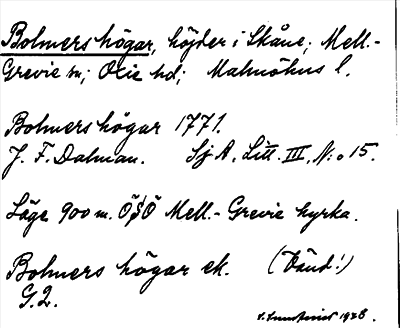 Bolmers högar, höjder i Skåne; Mell.-
Grevie sn; Oxie hd; Malmöhus l.
Bolmers högar 1771.
J. F. Dalman. Sj A, Litt. III, N:o 15.
Läge 900 m. ÖSÖ Mell.- Grevie kyrka.
Bolmers högar ek. (Vänd!)
G.2.
1928.